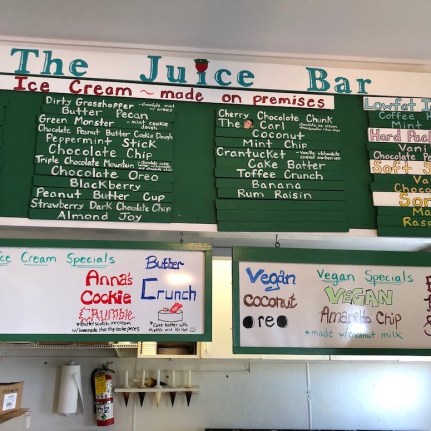 The Juice Bar
Ice Cream ~ made on premises
Dirty Grasshopper
Butter Pecan
Green Monster - mint cookie dough
Chocolate Peanut Butter Cookie Dough
Peppermint Stick
Chocolate Chip
Triple Chocolate Mountain
Chocolate Oreo
Blackberry
Peanut Butter Cup
Strawberry Dark Chocolate Chip
Almond Joy
Cherry Chocolate Chunk
The Carl
Coconut
Mint Chip
Crantucket
Cake Batter
Toffee Crunch
Banana
Rum Raisin
Lowfat I
Coffee
Mint
Hard
Va
Chocolate
Soft S
Va
Choco
Sor
Ma
Rasp
ce Cream Specials
Anna's
Cookie
Crumble
Butter
Crunch
*Cake batter with
Vegan
coconut
Oreo
Vegan Specials
VEGAN
Amaretto Chip
*made w/coconut milk